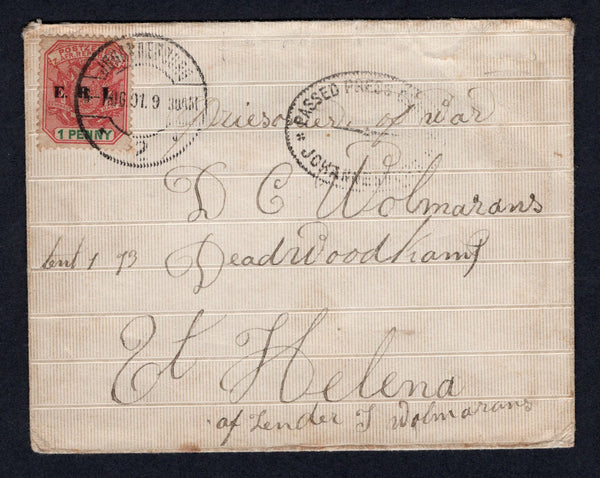 E. R. I.
1 PENNY
AUG 01. 9 30AM
2
* PASSED PRESS
JOHANNES
Priesoner of war
D C Wolmarans
tent 1 93 Deadwoodkamp
St Helena
af Zender J Wolmarans